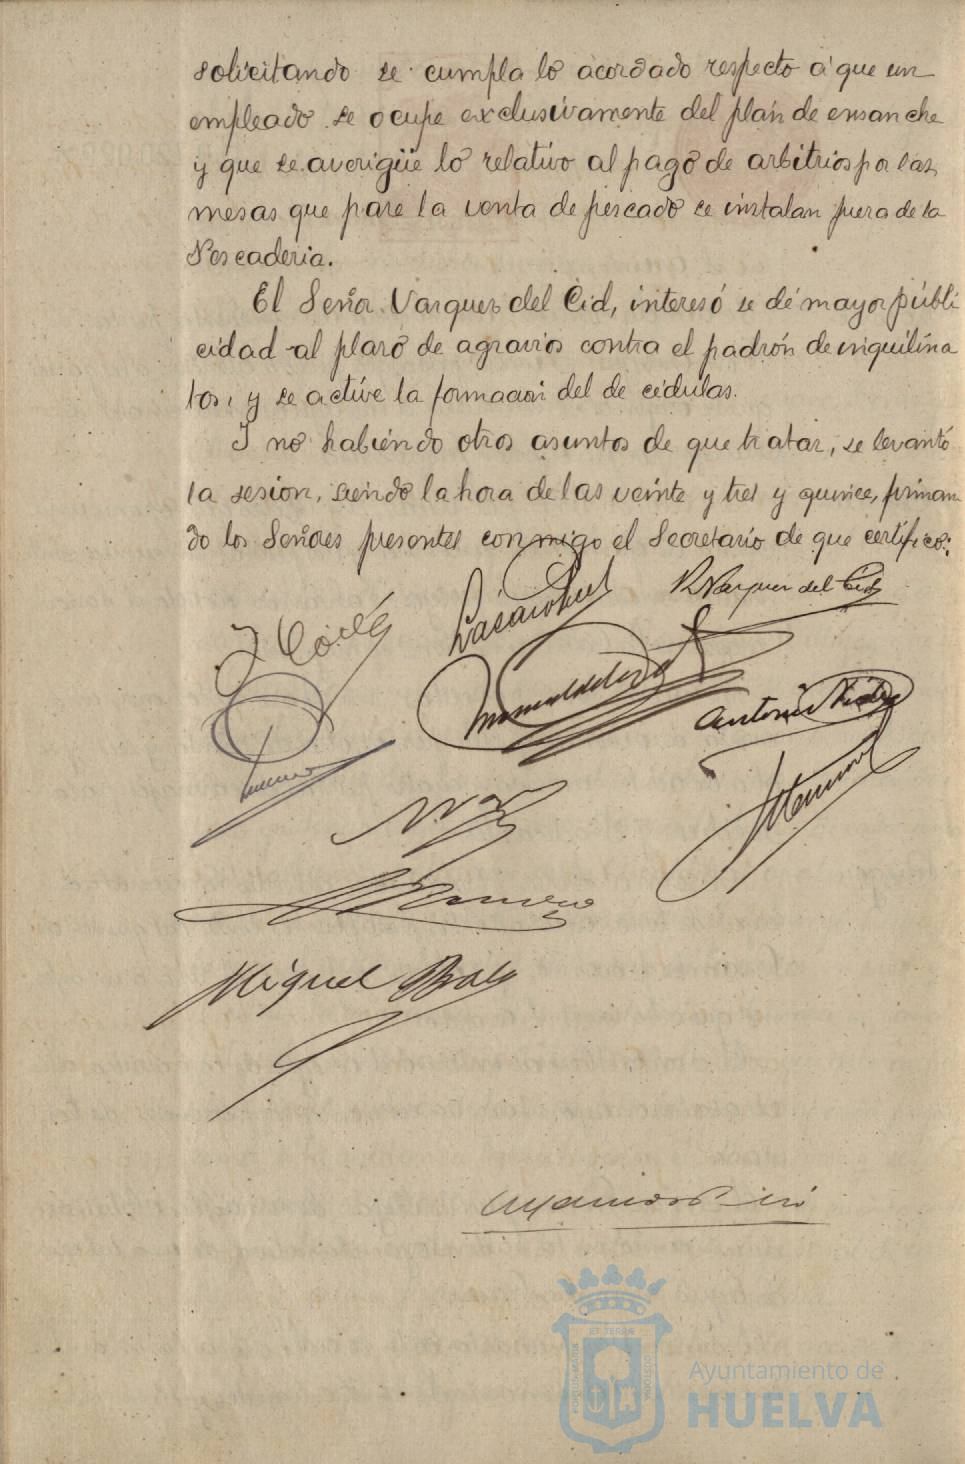 solicitando se cumpla lo acordado respecto a que un
empleado se ocupe exclusivamente del plan de ensanche
y que se averigüe lo relativo al pago de arbitrios por las
mesas que para la venta de pescado se instalan fuera de la
Pescaderia.
El Señor Vazquez del Cid, interesó se dé mayor publi
cidad al plazo de agravios contra el padrón de inquilina
tos, y se active la formacion del de cedulas.
I no habiendo otros asuntos de que tratar, se levantó
la sesion, siendo la hora de las veinte y tres y quince, firman
do los Señores presentes conmigo el Secretario de que certifico:
R. Vazquez del Cid
Antonio
Romero
Miguel
ET TERRAE
CUSTODIA
Ayuntamiento de
HUELVA